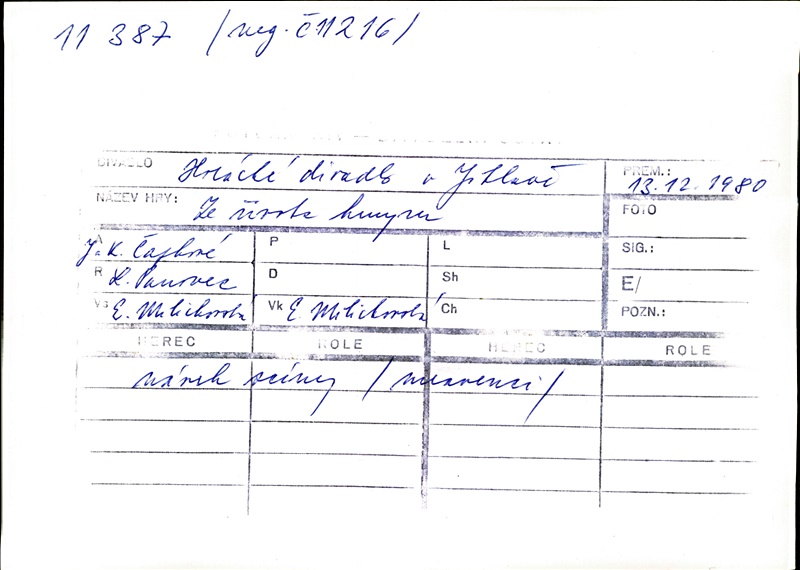 11 387 /neg. č 11216/
DIVADLO Horácké divadlo v Jihlavě PREM.: 13.12.1980
NÁZEV HRY: Ze života hmyzu FOTO
A J. a K. Čapkové P L SIG.:
R L. Panovec D Sh E/
Vs E. Milichovská Vk E. Milichovská Ch POZN.:
HEREC ROLE HEREC ROLE
návrh scény /mravenci/